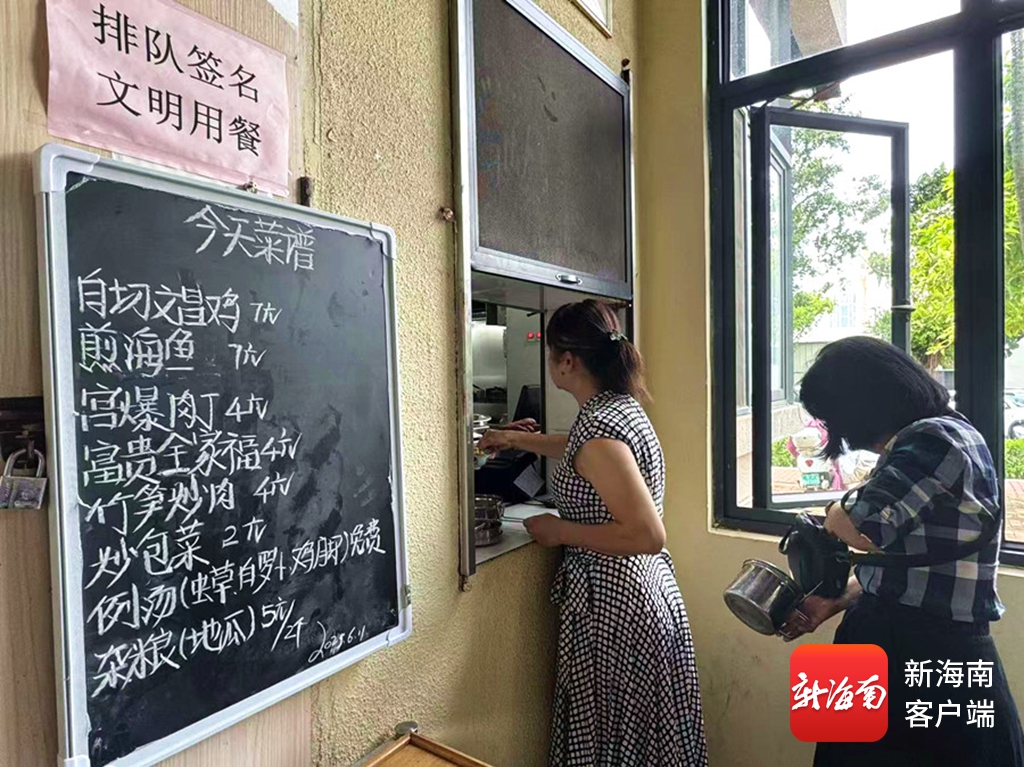 排队签名
文明用餐
今天菜谱
白切文昌鸡 7元
煎海鱼 7元
宫爆肉丁 4元
富贵全家福 4元
竹笋炒肉 4元
炒包菜 2元
例汤(虫草.白罗卜.鸡脚)免费
杂粮(地瓜)5元/2斤
2023.6.1
新海南
新海南
客户端